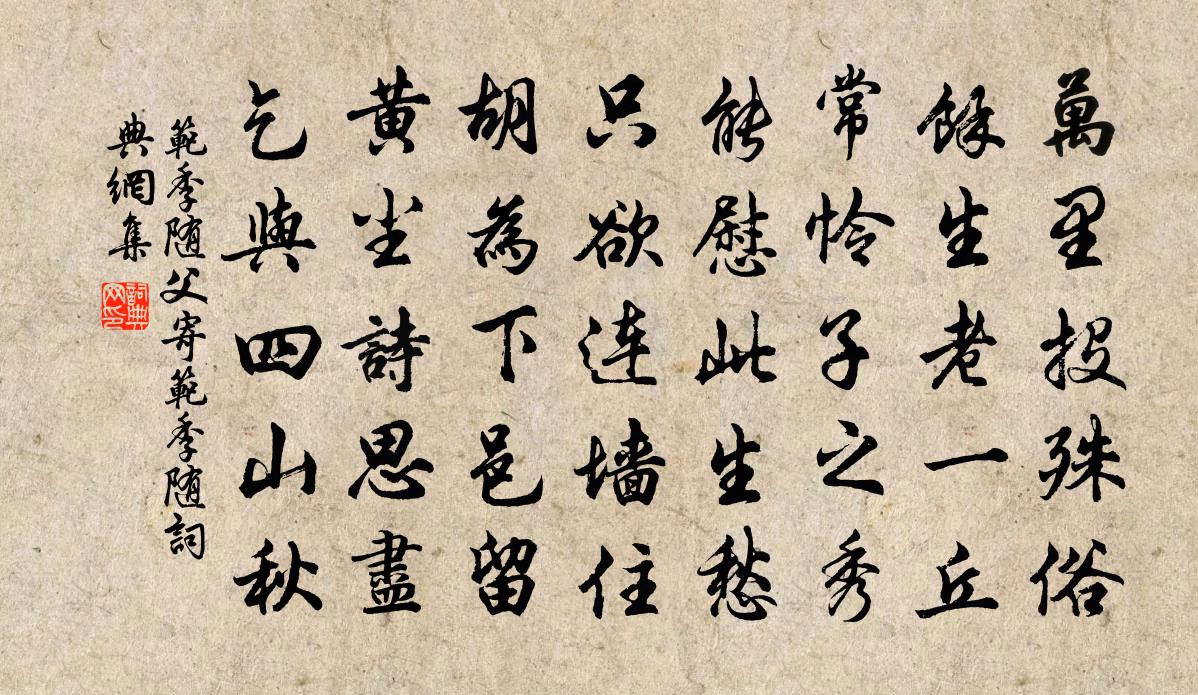 萬里投殊俗
餘生老一丘
常怜子之秀
能慰此生愁
只欲连墙住
胡為下邑留
黃尘詩思盡
乞與四山秋
範季随父寄範季随詞
典網集
詞典
网印